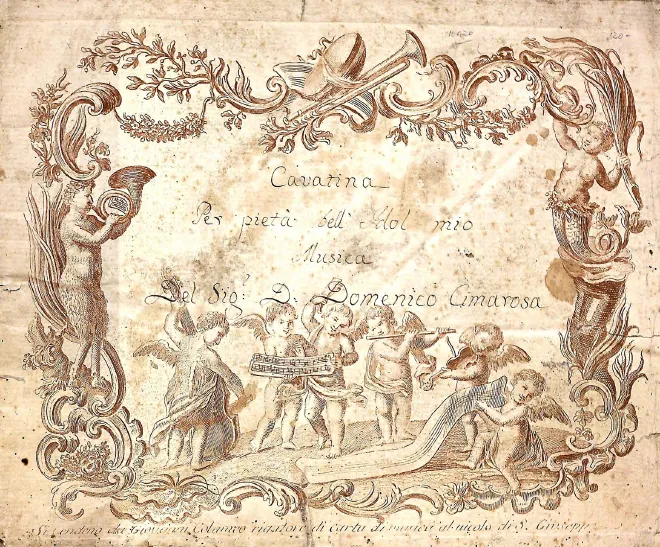 120-
Cavatina
Per pietà bell' Idol mio
Musica
Del Sig.r D. Domenico Cimarosa
Si vendono da Giovanni rigatore di carta di musica al vicolo di S. Giuseppe